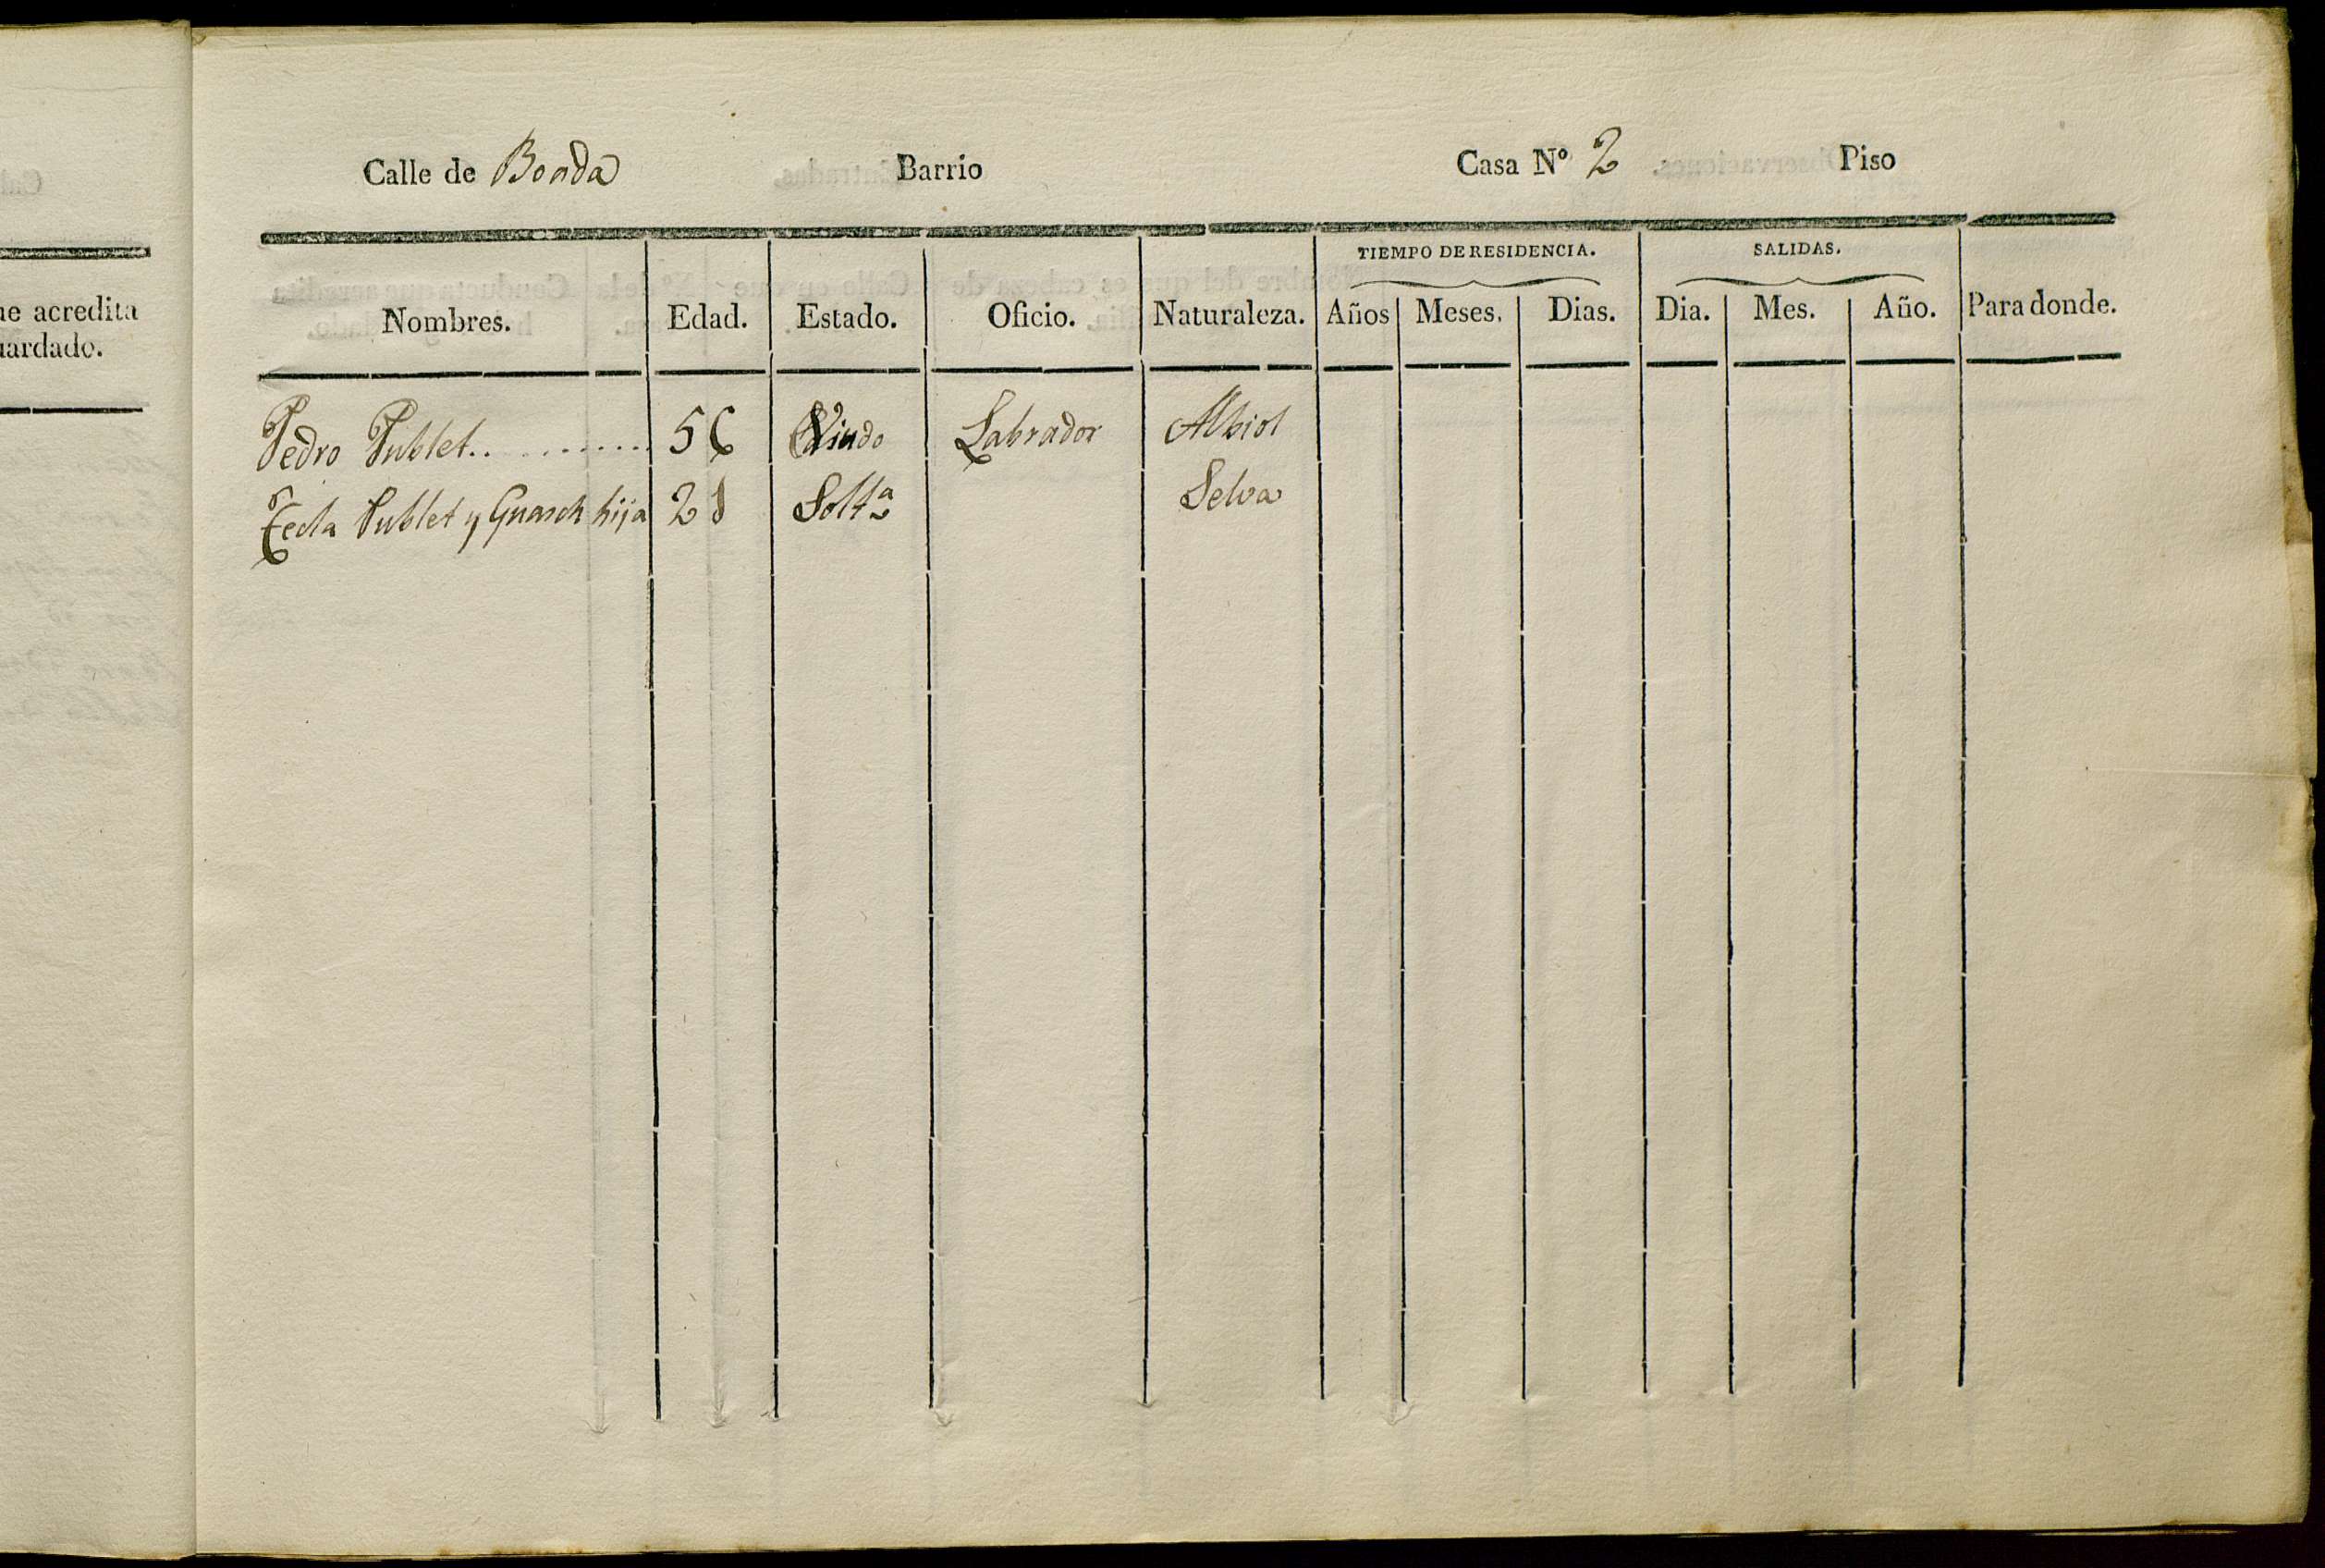 Calle de Boada Barrio Casa Nº 2 Piso
TIEMPO DE RESIDENCIA. SALIDAS.
Nombres. Edad. Estado. Oficio. Naturaleza. Años Meses. Dias. Dia. Mes. Año. Para donde.
Pedro Publet........... 56 Viudo Labrador Albiol
Tecla Publet y Guasch hija 28 Solt.a Selva
ue acredita
uardado.